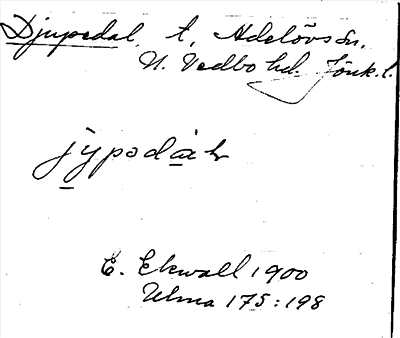 Djupedal, t, Adelövs sn.
N. Vedbo hd. Jönk. l.
jypədal
E. Ekwall 1900
Ulma 175:198